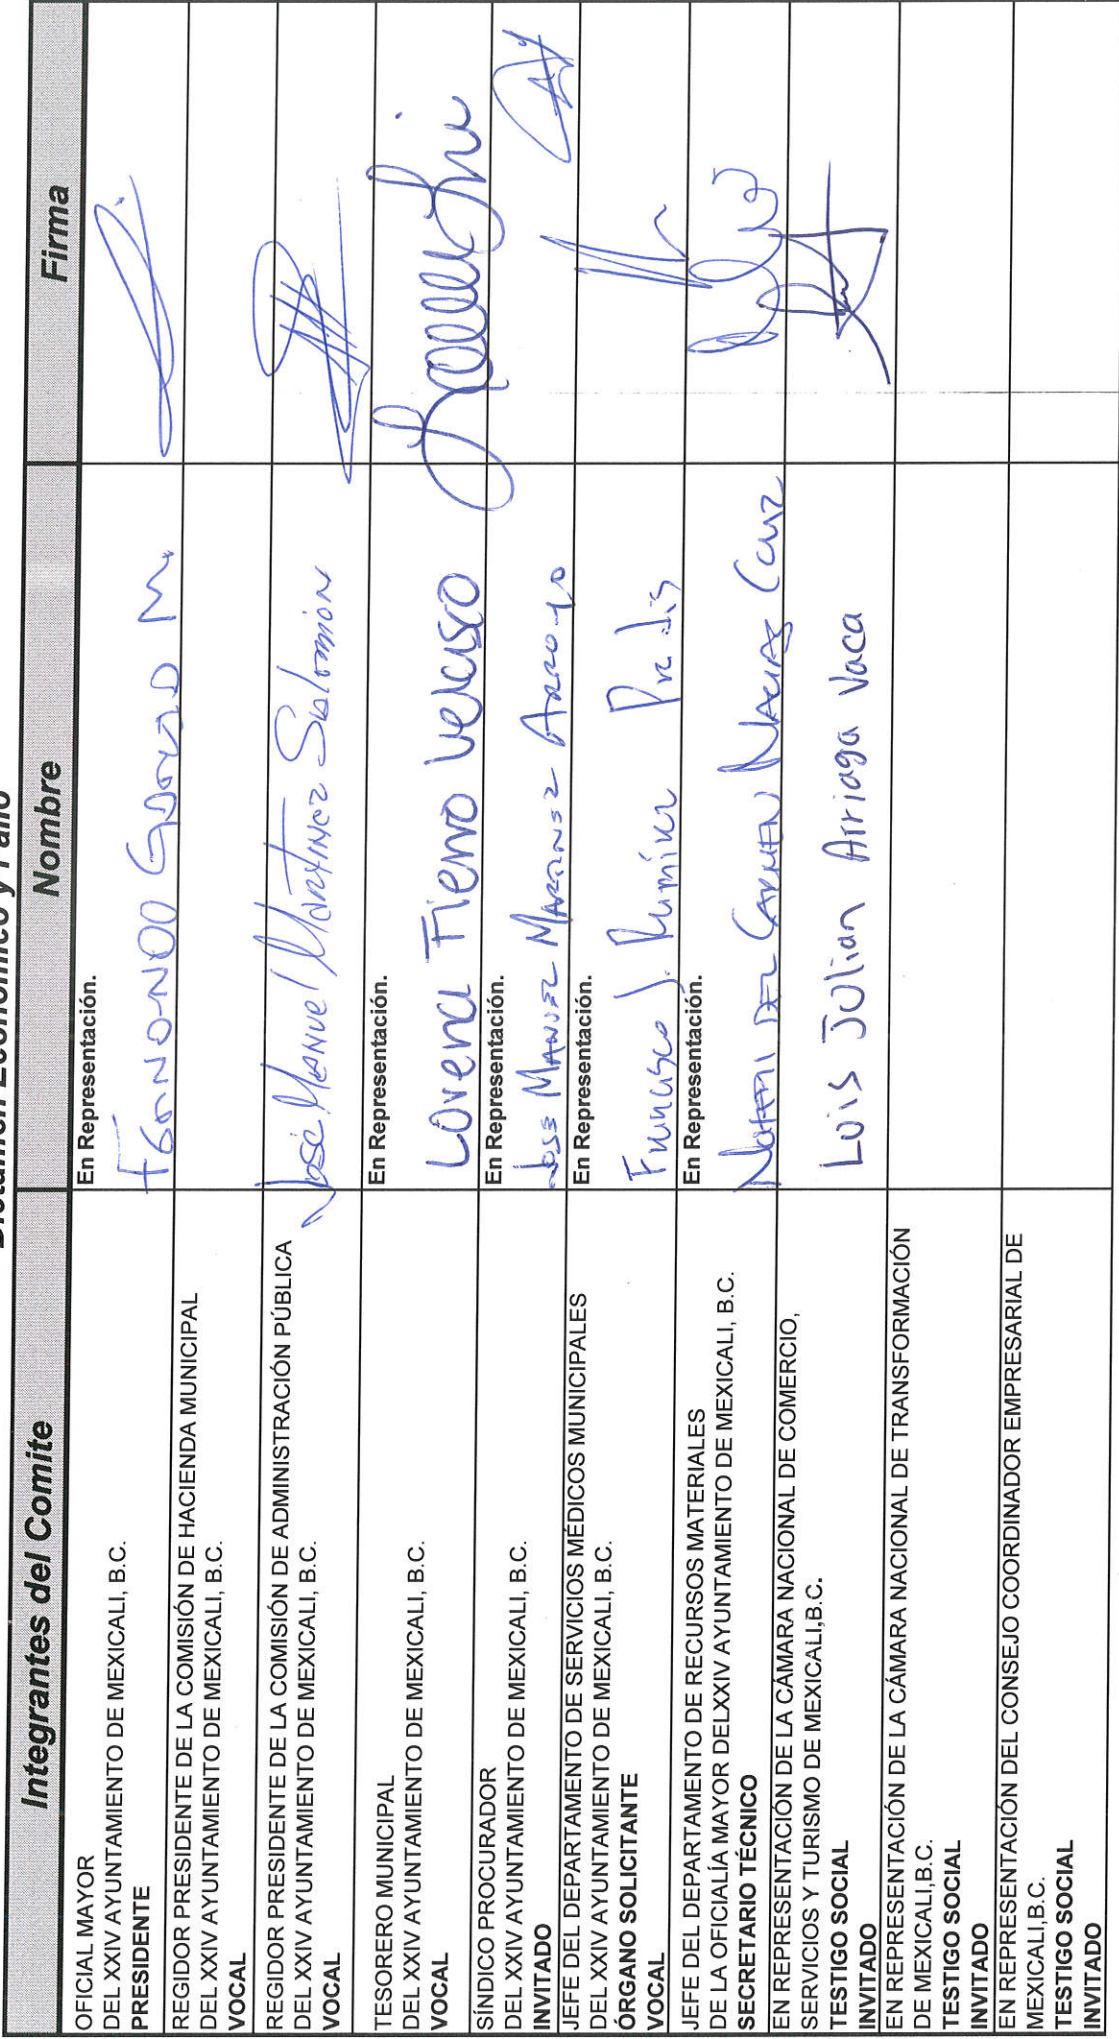 Dictamen Económico y Fallo
Integrantes del Comite
Nombre
Firma
OFICIAL MAYOR
DEL XXIV AYUNTAMIENTO DE MEXICALI, B.C.
PRESIDENTE
En Representación.
M.
REGIDOR PRESIDENTE DE LA COMISIÓN DE HACIENDA MUNICIPAL
DEL XXIV AYUNTAMIENTO DE MEXICALI, B.C.
VOCAL
REGIDOR PRESIDENTE DE LA COMISIÓN DE ADMINISTRACIÓN PÚBLICA
DEL XXIV AYUNTAMIENTO DE MEXICALI, B.C.
VOCAL
José Manuel Martínez Salomón
TESORERO MUNICIPAL
DEL XXIV AYUNTAMIENTO DE MEXICALI, B.C.
VOCAL
En Representación.
Lorena Fierro Velasco
SÍNDICO PROCURADOR
DEL XXIV AYUNTAMIENTO DE MEXICALI, B.C.
INVITADO
En Representación.
Jose Manuel Martinez Arroyo
JEFE DEL DEPARTAMENTO DE SERVICIOS MÉDICOS MUNICIPALES
DEL XXIV AYUNTAMIENTO DE MEXICALI, B.C.
ÓRGANO SOLICITANTE
VOCAL
En Representación.
Francisco J. Ramírez
JEFE DEL DEPARTAMENTO DE RECURSOS MATERIALES
DE LA OFICIALÍA MAYOR DELXXIV AYUNTAMIENTO DE MEXICALI, B.C.
SECRETARIO TÉCNICO
En Representación.
DEL CARMEN MACIAS CRUZ
EN REPRESENTACIÓN DE LA CÁMARA NACIONAL DE COMERCIO,
SERVICIOS Y TURISMO DE MEXICALI,B.C.
TESTIGO SOCIAL
INVITADO
Luis Julian Arriaga Vaca
EN REPRESENTACIÓN DE LA CÁMARA NACIONAL DE TRANSFORMACIÓN
DE MEXICALI,B.C.
TESTIGO SOCIAL
INVITADO
EN REPRESENTACIÓN DEL CONSEJO COORDINADOR EMPRESARIAL DE
MEXICALI,B.C.
TESTIGO SOCIAL
INVITADO